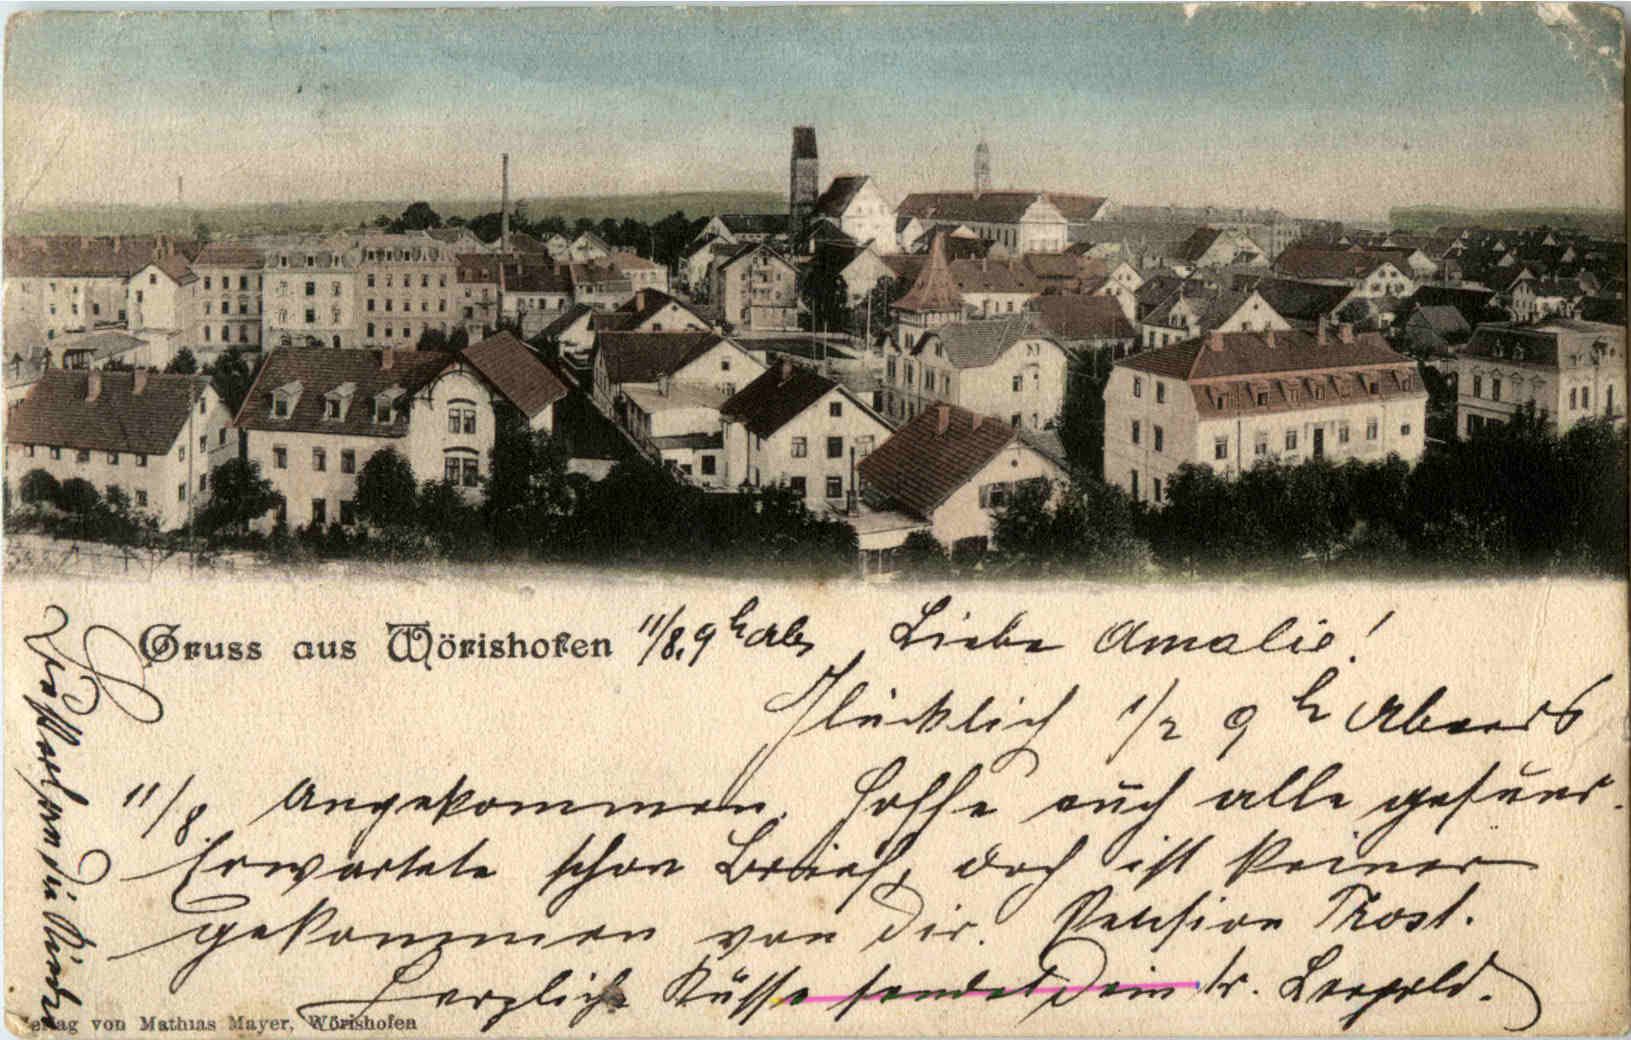 Gruss aus Wörishofen 11/8. 9 h Ab. Liebe Amalie!
Glücklich 1/2 9 h Abends
11/8 Angekommen. Hoffe auch alle gesund.
Erwartete schon Brief, doch ist keiner
gekommen von Dir. Pension Trost.
Herzliche Küsse sendet Dein tr. Leopold.
die Kinder
Verlag von Mathias Mayer, Wörishofen